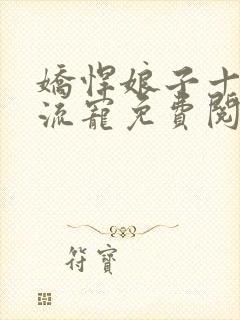 嬌悍娘子十
流寵免費閱
符寶